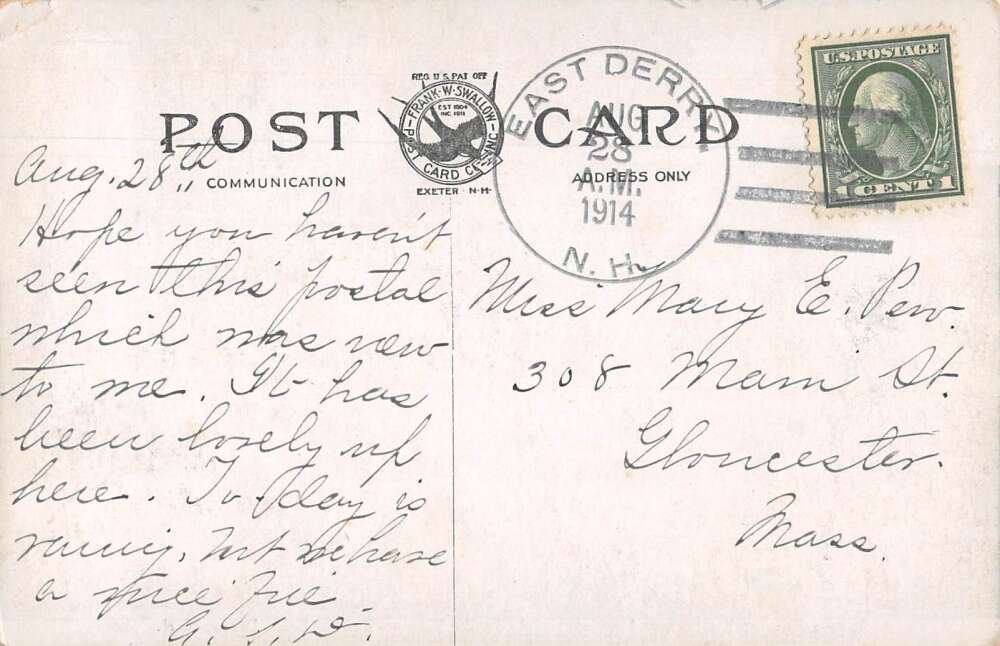 REG U.S PAT OFF
FRANK·W·SWALLOW
POST CARD CO INC
EST 1904
INC. 1911
EXETER N·H·
POST CARD
COMMUNICATION
ADDRESS ONLY
EAST DERRY
AUG
28
A.M.
1914
N. H.
U.S. POSTAGE
1 CENT 1
Aug. 28th
Hope you haven't
seen this postal
which was new
to me. It has
been lovely up
here. To-day is
rainy, but we have
a nice fire.
Miss Mary E. Pew.
308 Main St.
Gloucester.
Mass.